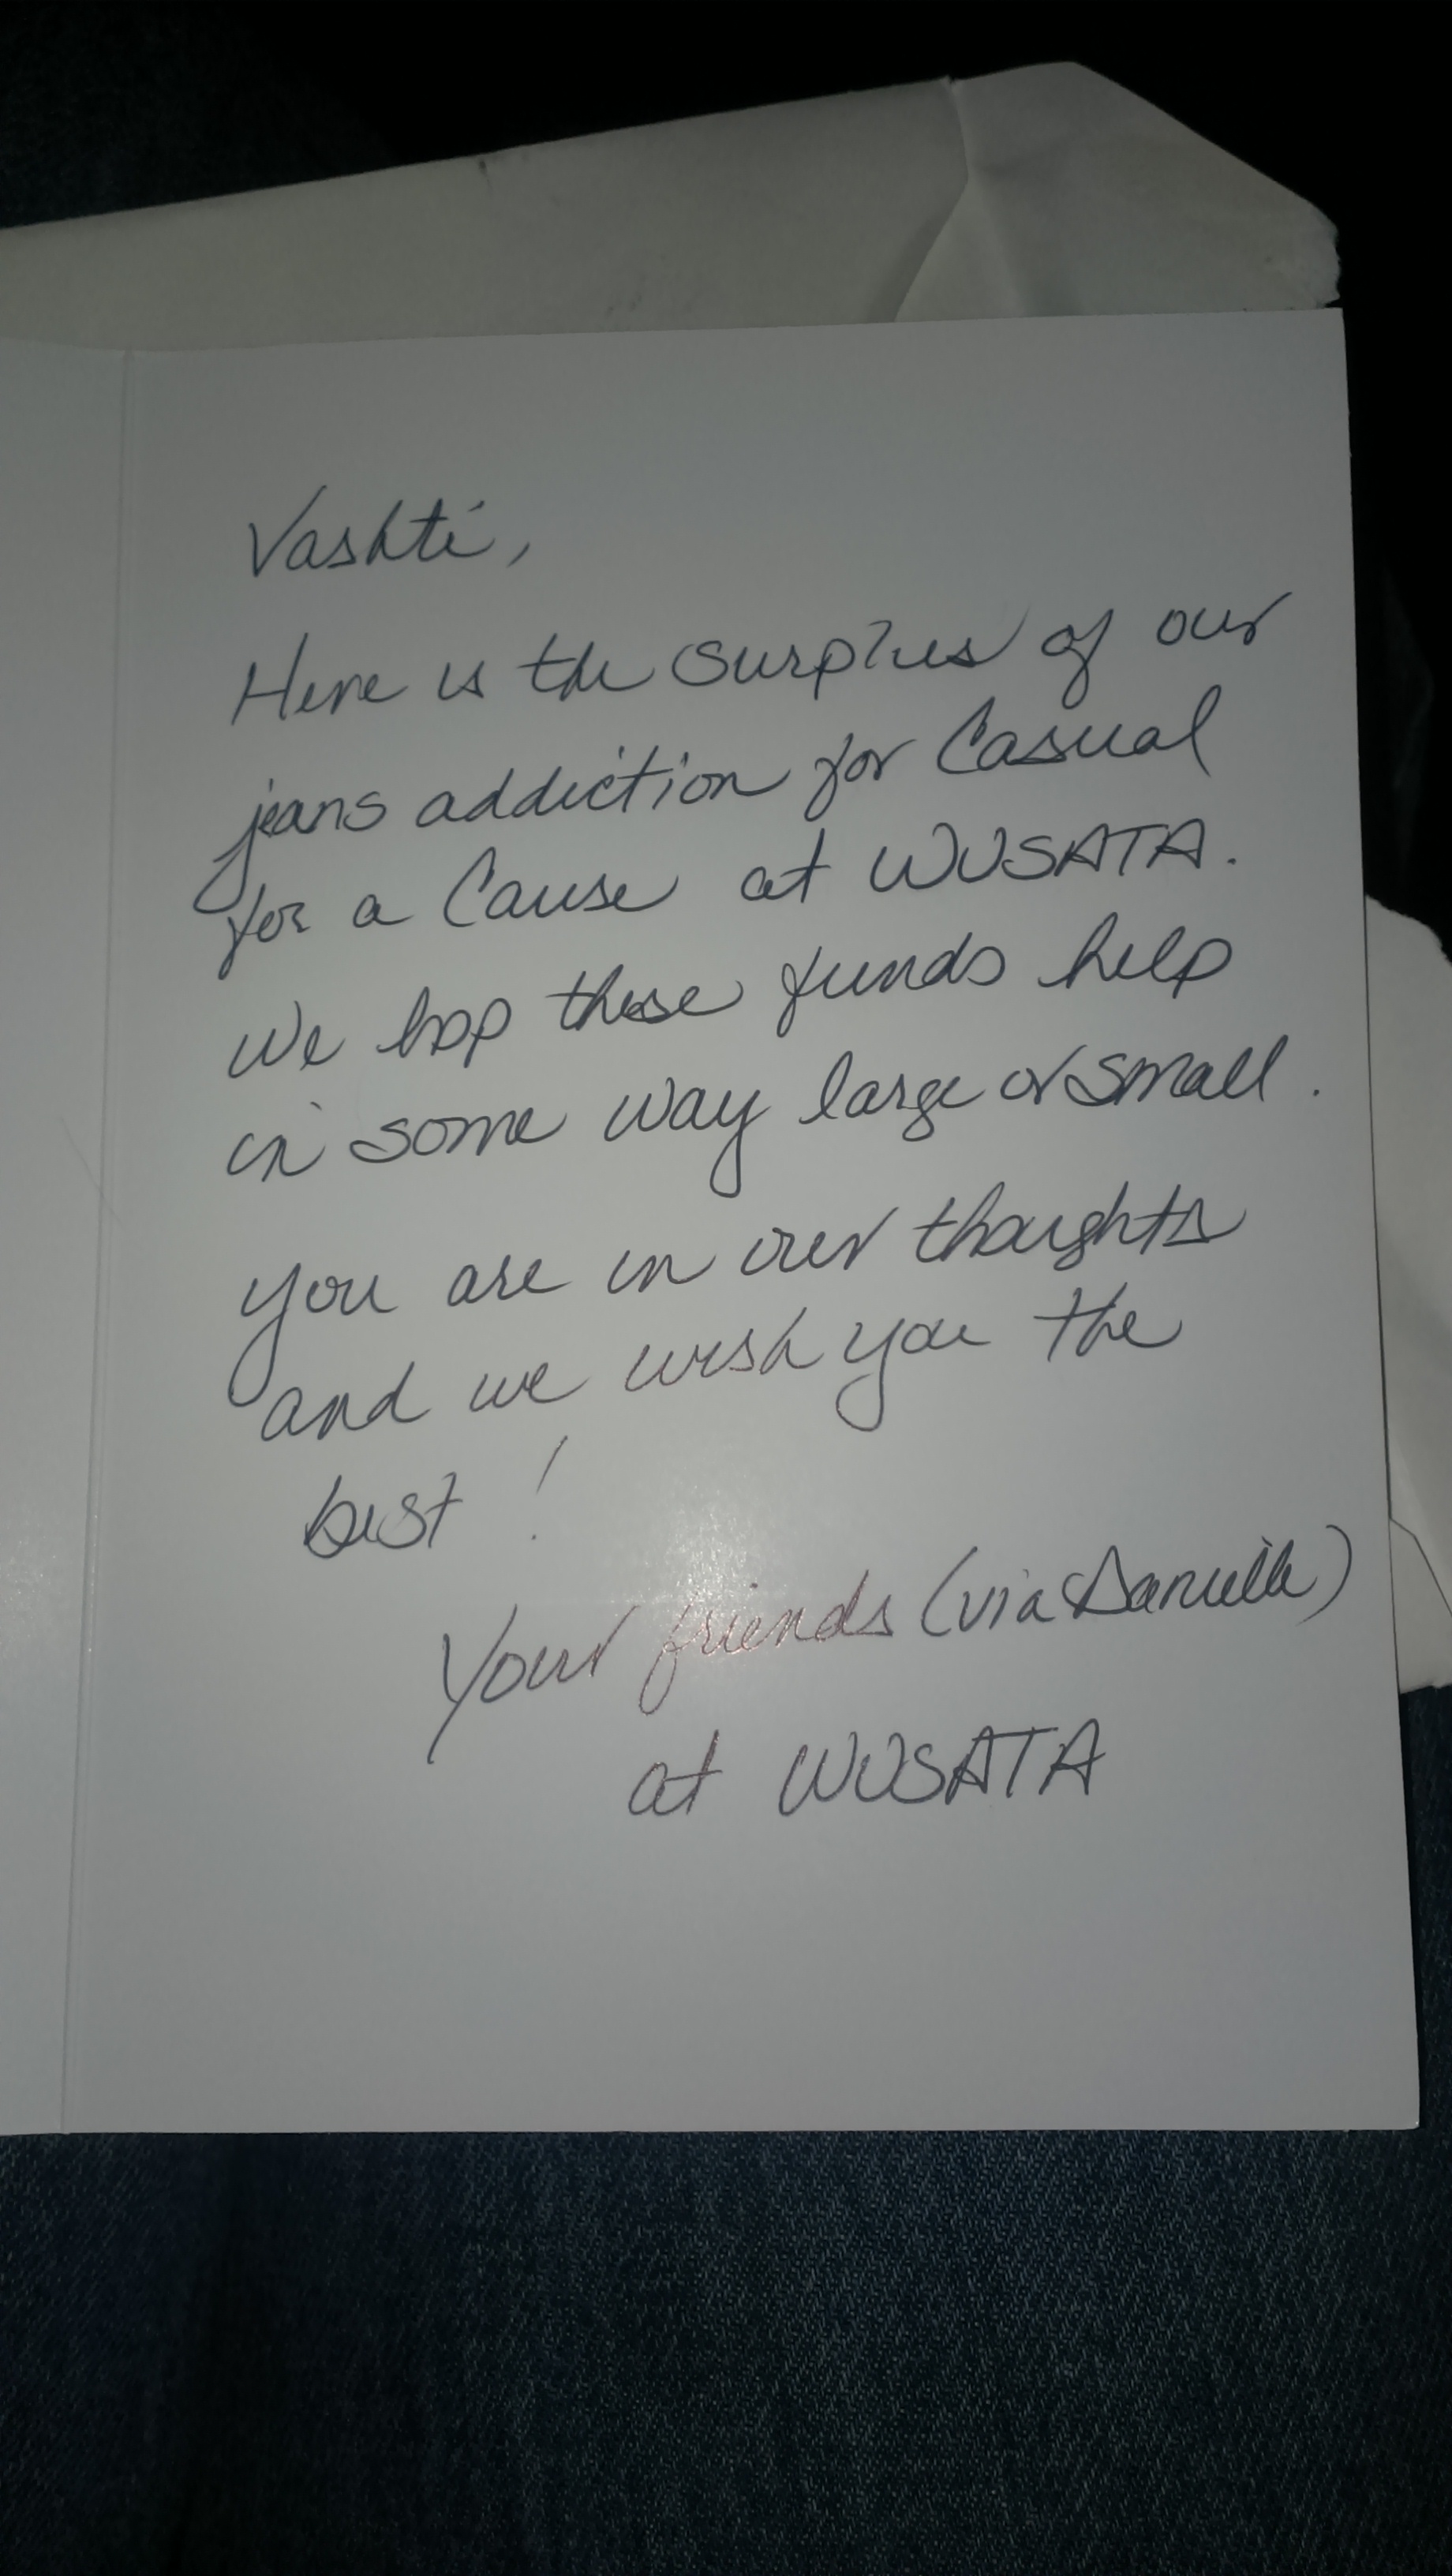 Vashti,
Here is the surplus of our
jeans addiction for Casual
for a Cause at WUSATA.
We hop these funds help
in some way large or small.
You are in our thoughts
and we wish you the
best!
Your friends (via Danielle)
at WUSATA